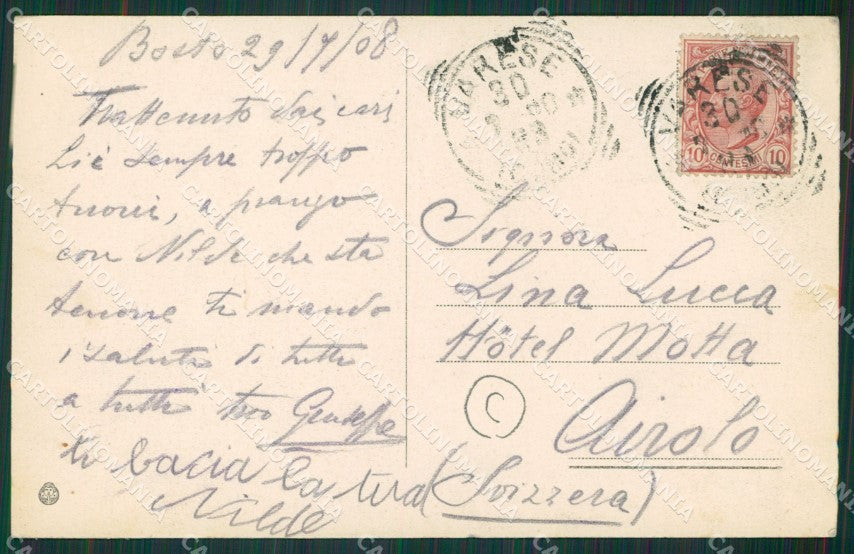 Bosto 29/7/08
Trattenuto dai cari
Lì è sempre troppo
buoni, a pranzo
con Nilde che sta
benone ti mando
i saluti di tutti
a tutti tuo Giuseppe
Ti bacia la tua
Nilde
VARESE
30
VARESE
30
10 CENTESIMI 10
Signora
Lina Lucca
Hôtel Motta
Airolo
(Svizzera)
C
CARTOLINOMANIA